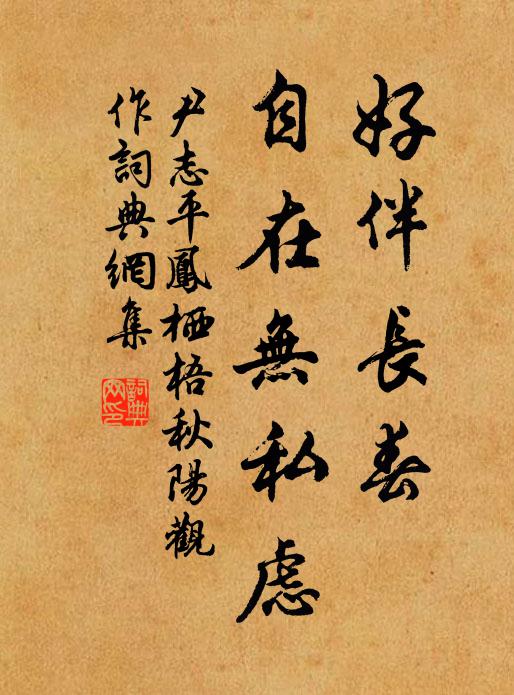 好伴長春
自在無私慮
尹志平鳳栖梧秋陽觀
作詞典網集
詞典網印